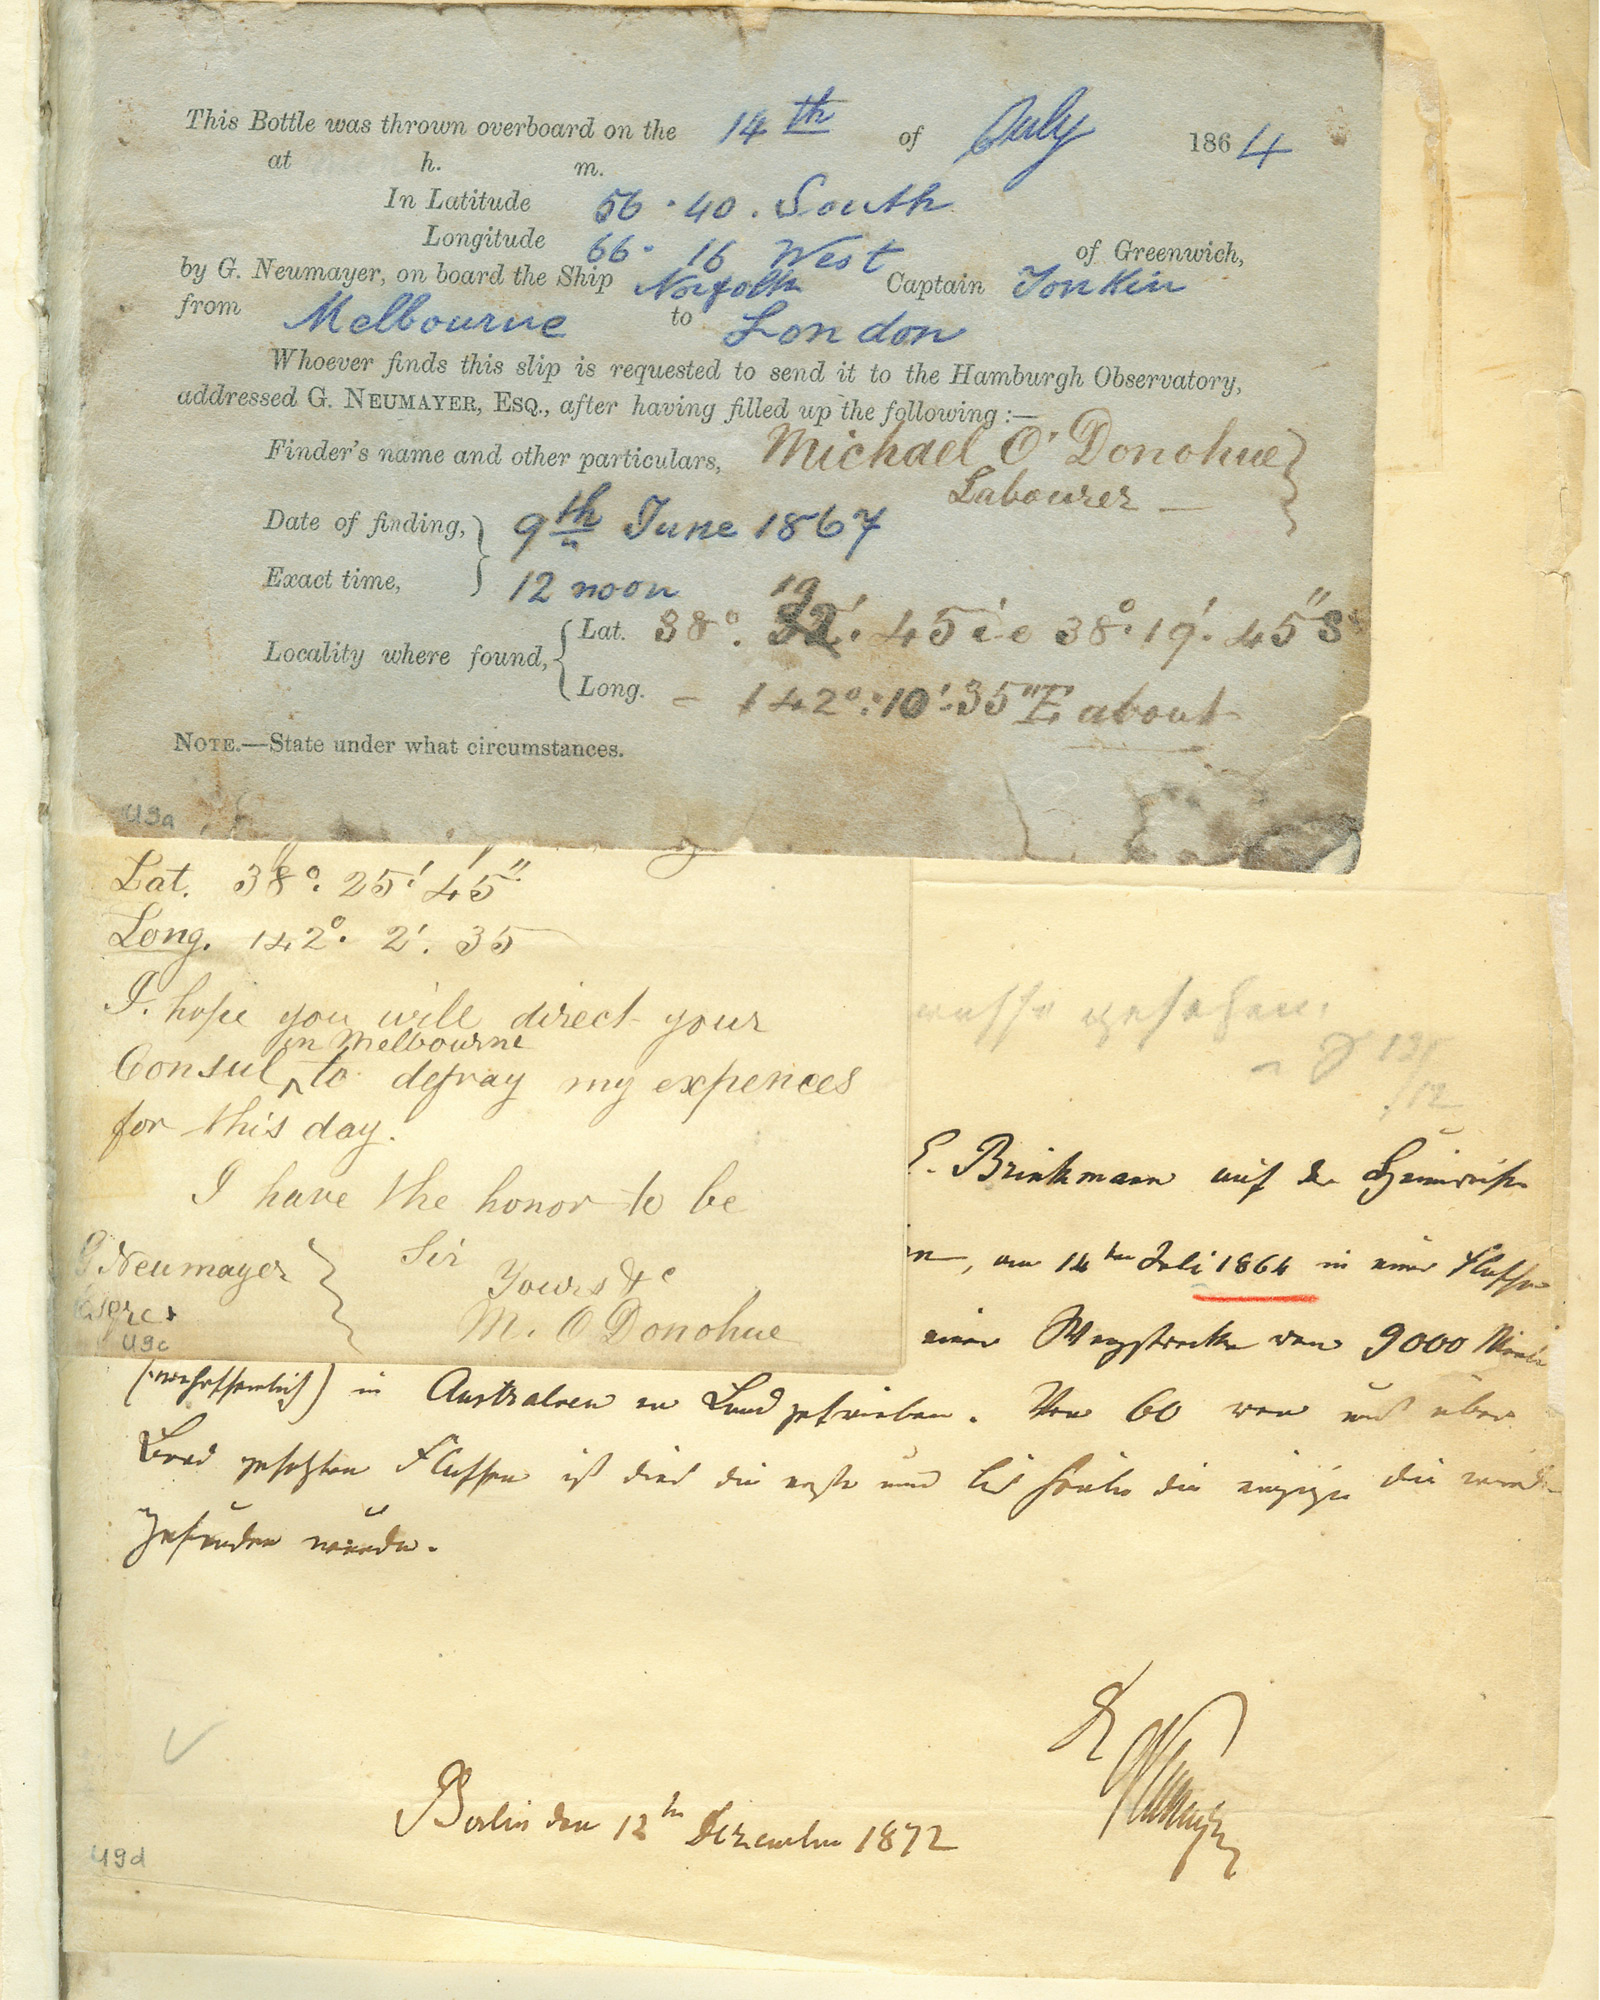 This Bottle was thrown overboard on the 14th of July 1864
at h. m.
In Latitude 56° 40. South
Longitude 66° 16 West of Greenwich,
by G. Neumayer, on board the Ship Norfolk Captain Tonkin
from Melbourne to London
Whoever finds this slip is requested to send it to the Hamburgh Observatory,
addressed G. NEUMAYER, ESQ., after having filled up the following :—
Finder's name and other particulars, Michael O'Donohue
Labourer —
Date of finding, 9th June 1867
Exact time, 12 noon
19
Locality where found, Lat. 38°. 32'. 45 i e 38°. 19'. 45" S
Long. – 142°. 10'. 35" E about
NOTE.—State under what circumstances.
U9a
Lat. 38°. 25' 45"
Long. 142°. 2'. 35
I hope you will direct your
in Melbourne
Consul ^ to defray my expences
for this day.
I have the honor to be
Sir
G Neumayer
Yours &c
M. O Donohue
U9c
gesehen.
E. Brinkmann auf der Heimreise
, am 14ten Juli 1864 in einer Flasche
einer Wegstrecke von 9000
(wahrscheinlich) in Australien an Land getrieben. Von 60 von mir über
Bord gesetzten Flaschen ist dies die erste und bis heute die einzige die
gefunden wurde.
Neumayer
Berlin den 12ten Dezember 1872
U9d